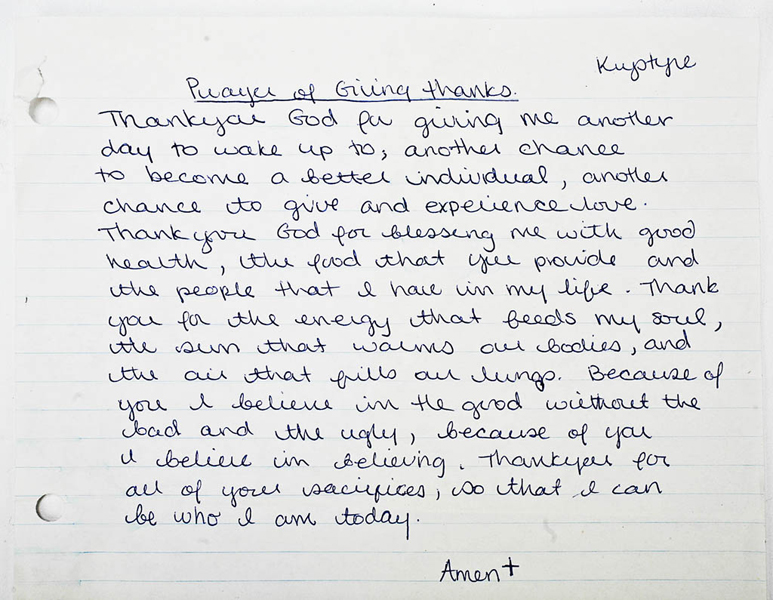 Kuptyne
Prayer of Giving thanks.
Thankyou God for giving me another
day to wake up to, another chance
to become a better individual, another
chance to give and experience love.
Thankyou God for blessing me with good
health, the food that you provide and
the people that I have in my life. Thank
you for the energy that feeds my soul,
the sun that warms our bodies, and
the air that fills our lungs. Because of
you I believe in the good without the
bad and the ugly, because of you
I believe in believing. Thankyou for
all of your sacrifices, so that I can
be who I am today.
Amen †